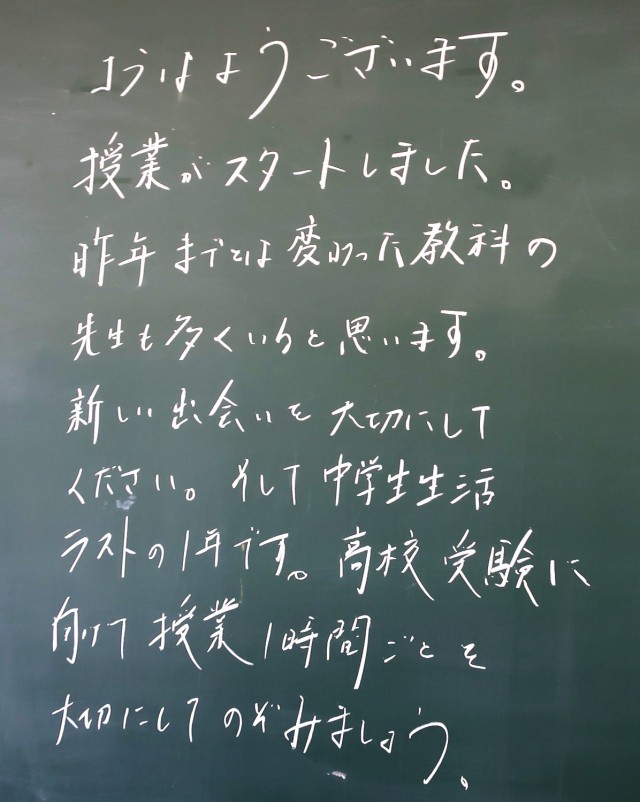 おはようございます。
授業がスタートしました。
昨年までとは変わった教科の
先生も多くいると思います。
新しい出会いを大切にして
ください。そして中学生生活
ラストの1年です。高校受験に
向けて授業1時間ごとを
大切にしてのぞみましょう。